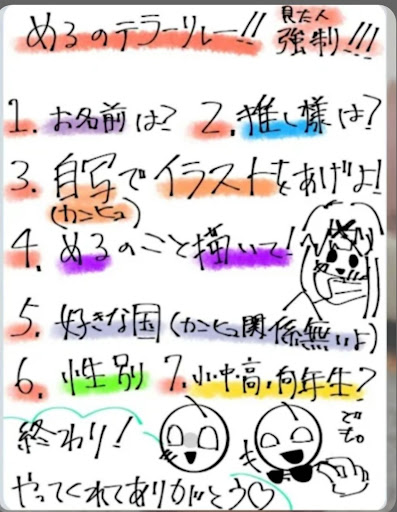 めるのテラーリレー!! 見た人強制!!!
1. お名前は? 2. 推し様は?
3. 自写でイラストをあげよ!
(カンヒュ)
4. めるのこと描いて!
5. 好きな国(カンヒュ関係無いよ)
6. 性別 7. 小中高,何年生?
でも。
終わり!
やってくれてありがとう♡